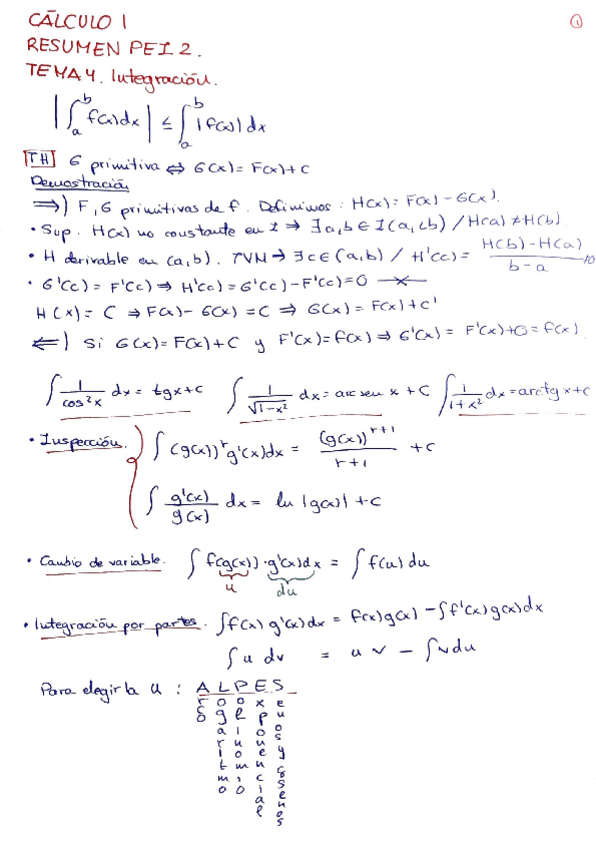 CÁLCULO 1
①
RESUMEN PEI 2.
TEMA 4. Integración.
|∫_a^b f(x)dx| ≤ ∫_a^b |f(x)|dx
TH G primitiva ⇔ G(x) = F(x)+C
Demostración
⇒) F, G primitivas de f. Definimos: H(x) = F(x) - G(x).
• Sup. H(x) no constante en I ⇒ ∃a,b∈I (a<b) / H(a) ≠ H(b)
• H derivable en (a,b). TVM → ∃c∈(a,b) / H'(c) = (H(b)-H(a))/(b-a) ≠0
• G'(c) = F'(c) ⇒ H'(c) = G'(c) - F'(c) = 0
H(x) = C ⇒ F(x) - G(x) = C ⇒ G(x) = F(x) + C'
⇐) Si G(x) = F(x)+C y F'(x) = f(x) ⇒ G'(x) = F'(x)+0 = f(x)
∫ 1/cos²x dx = tgx+C ∫ 1/√(1-x²) dx = arcsen x + C ∫ 1/(1+x²) dx = arctg x + C
• Inspección. ∫ (g(x))^r g'(x)dx = (g(x))^(r+1)/(r+1) + C
∫ g'(x)/g(x) dx = ln |g(x)| + C
• Cambio de variable. ∫ f(g(x))·g'(x)dx = ∫ f(u) du
u du
• Integración por partes. ∫f(x) g'(x)dx = f(x)g(x) - ∫f'(x)g(x)dx
∫ u dv = u v - ∫ v du
Para elegir la u : A L P E S
rcos
ogaritmo
olinomio
xponencial
enos y cosenos